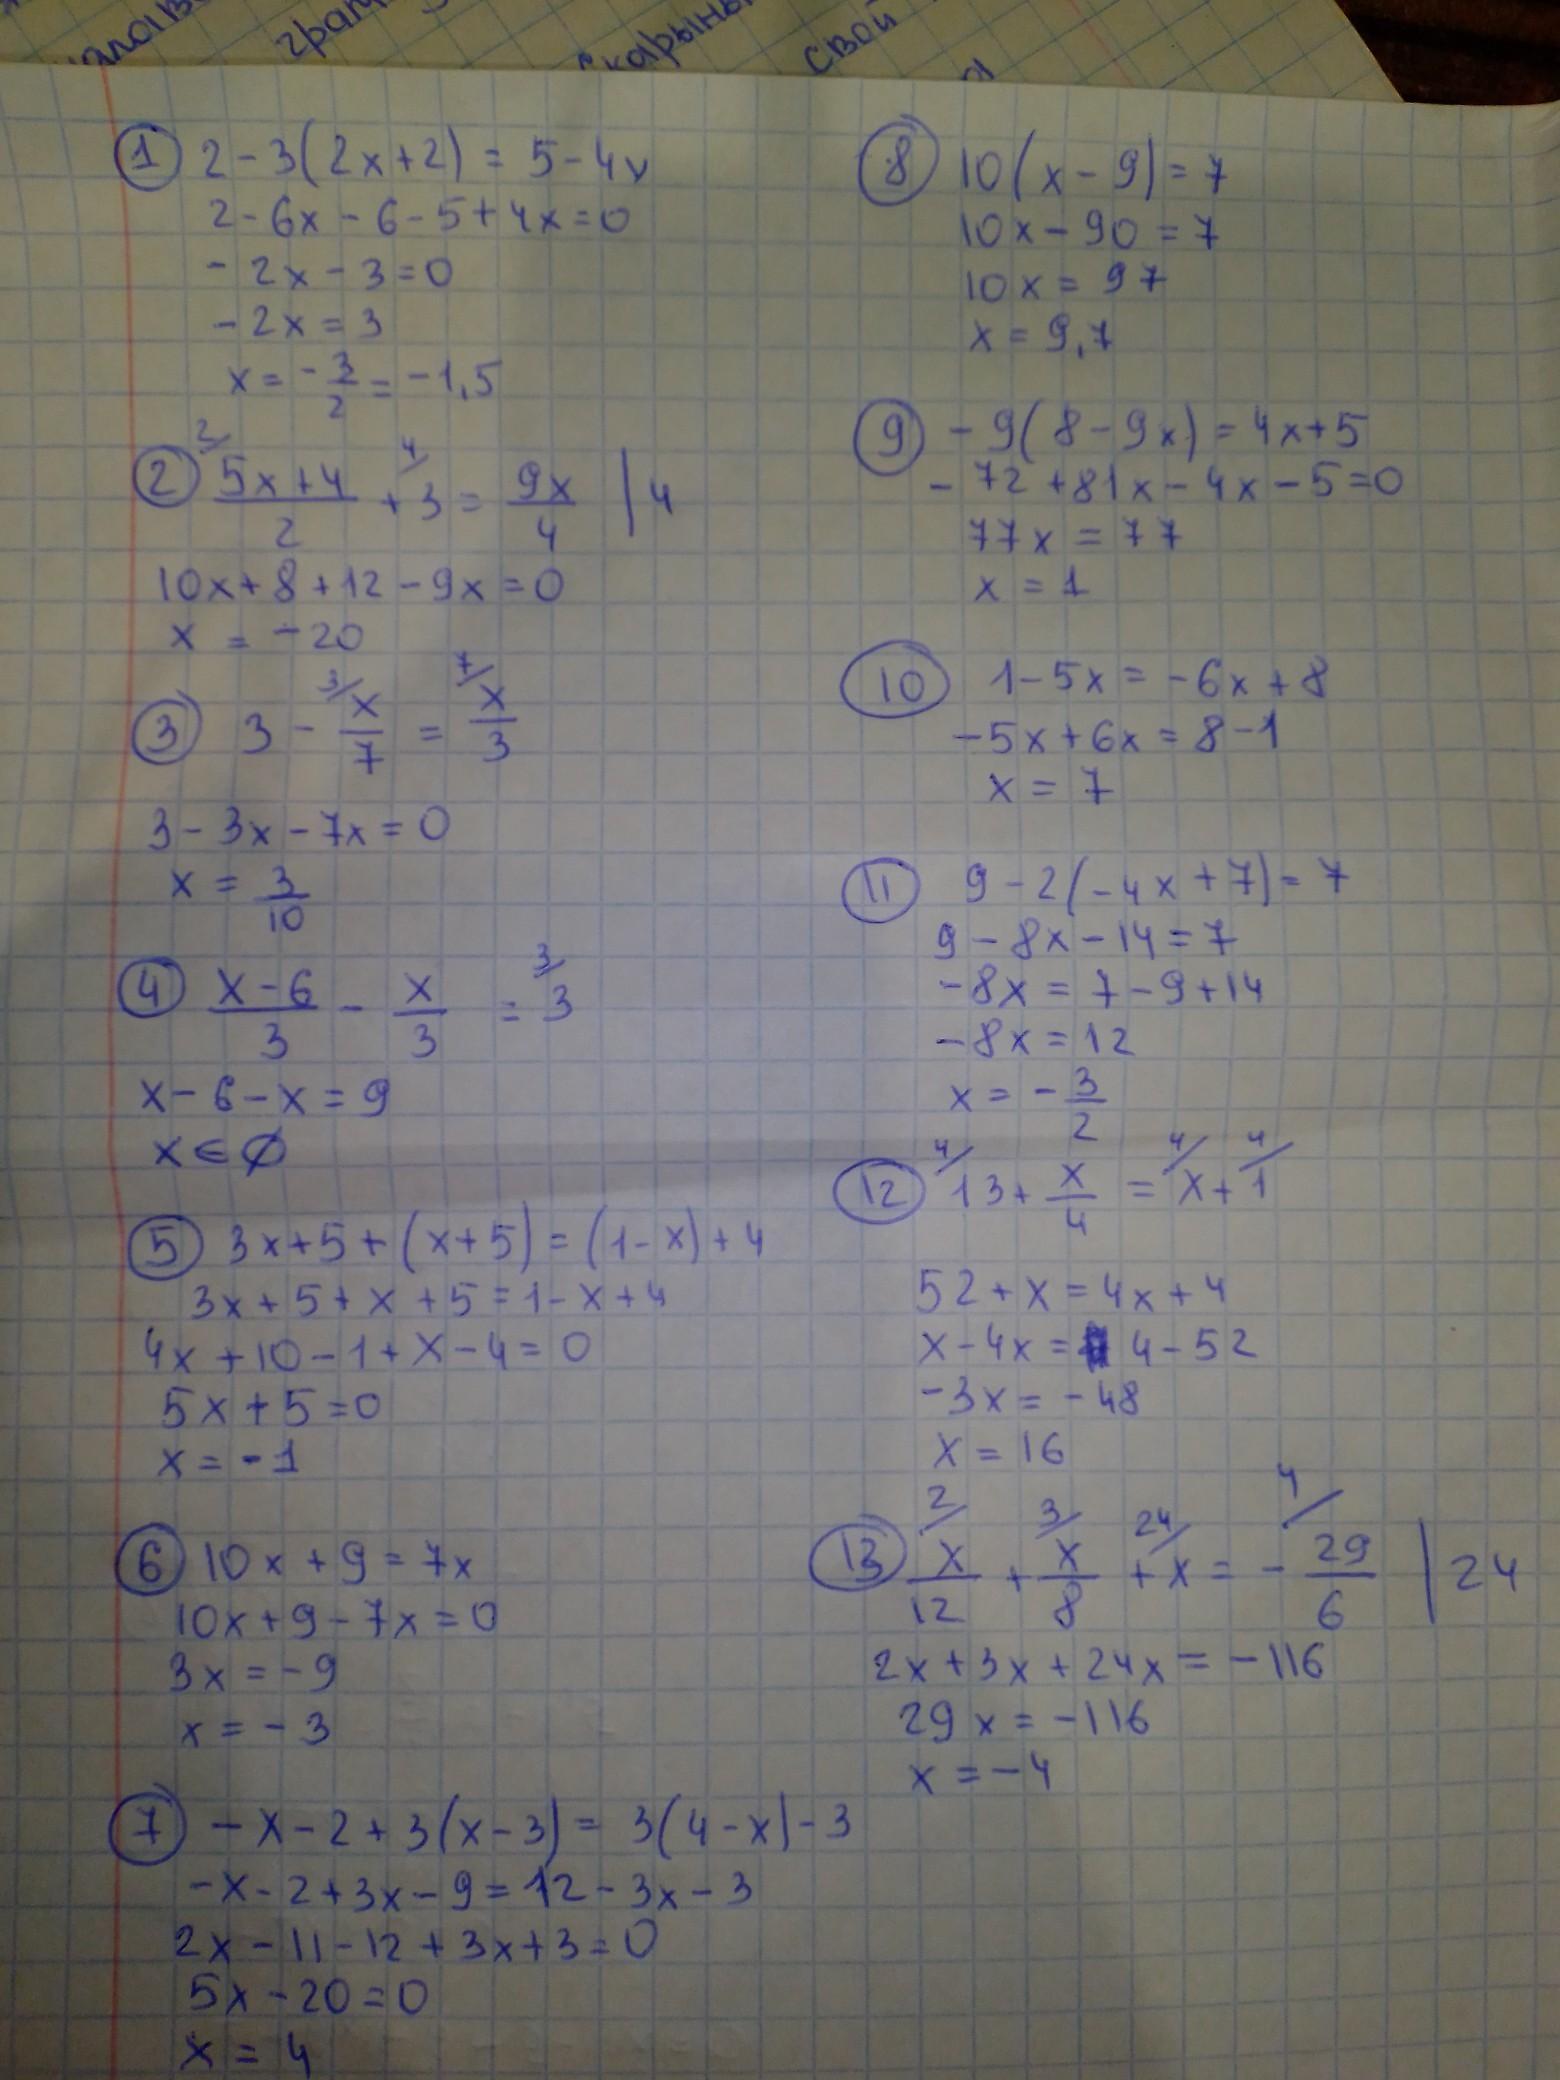 грап
скарыны
свой
1 2 - 3(2x+2) = 5 - 4x
2 - 6x - 6 - 5 + 4x = 0
- 2x - 3 = 0
- 2x = 3
x = - 3/2 = - 1,5
2 (5x+4)/2 + 3 = 9x/4 | 4
10x + 8 + 12 - 9x = 0
x = - 20
3 3 - x/7 = x/3
3 - 3x - 7x = 0
x = 3/10
4 (x-6)/3 - x/3 = 3
x - 6 - x = 9
x ∈ ∅
5 3x + 5 + (x+5) = (1-x) + 4
3x + 5 + x + 5 = 1 - x + 4
4x + 10 - 1 + x - 4 = 0
5x + 5 = 0
x = - 1
6 10x + 9 = 7x
10x + 9 - 7x = 0
3x = - 9
x = - 3
7 - x - 2 + 3(x-3) = 3(4-x) - 3
- x - 2 + 3x - 9 = 12 - 3x - 3
2x - 11 - 12 + 3x + 3 = 0
5x - 20 = 0
x = 4
8 10(x - 9) = 7
10x - 90 = 7
10x = 97
x = 9,7
9 - 9(8 - 9x) = 4x + 5
- 72 + 81x - 4x - 5 = 0
77x = 77
x = 1
10 1 - 5x = - 6x + 8
- 5x + 6x = 8 - 1
x = 7
11 9 - 2(- 4x + 7) = 7
9 - 8x - 14 = 7
- 8x = 7 - 9 + 14
- 8x = 12
x = - 3/2
12 13 + x/4 = x + 1
52 + x = 4x + 4
x - 4x = 4 - 52
- 3x = - 48
x = 16
13 x/12 + x/8 + x = - 29/6 | 24
2x + 3x + 24x = - 116
29x = - 116
x = - 4